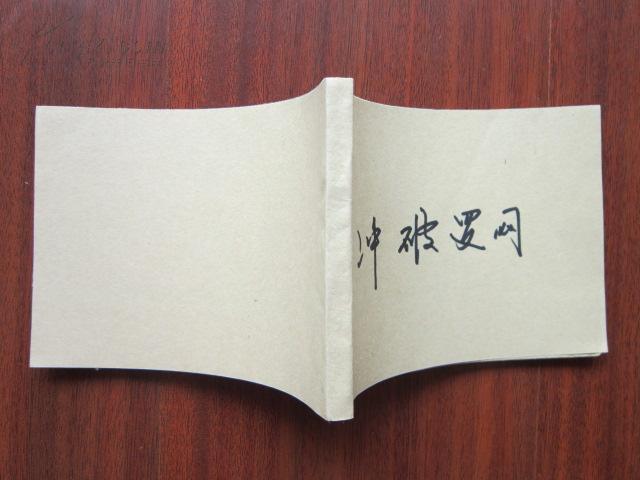 冲破罗网